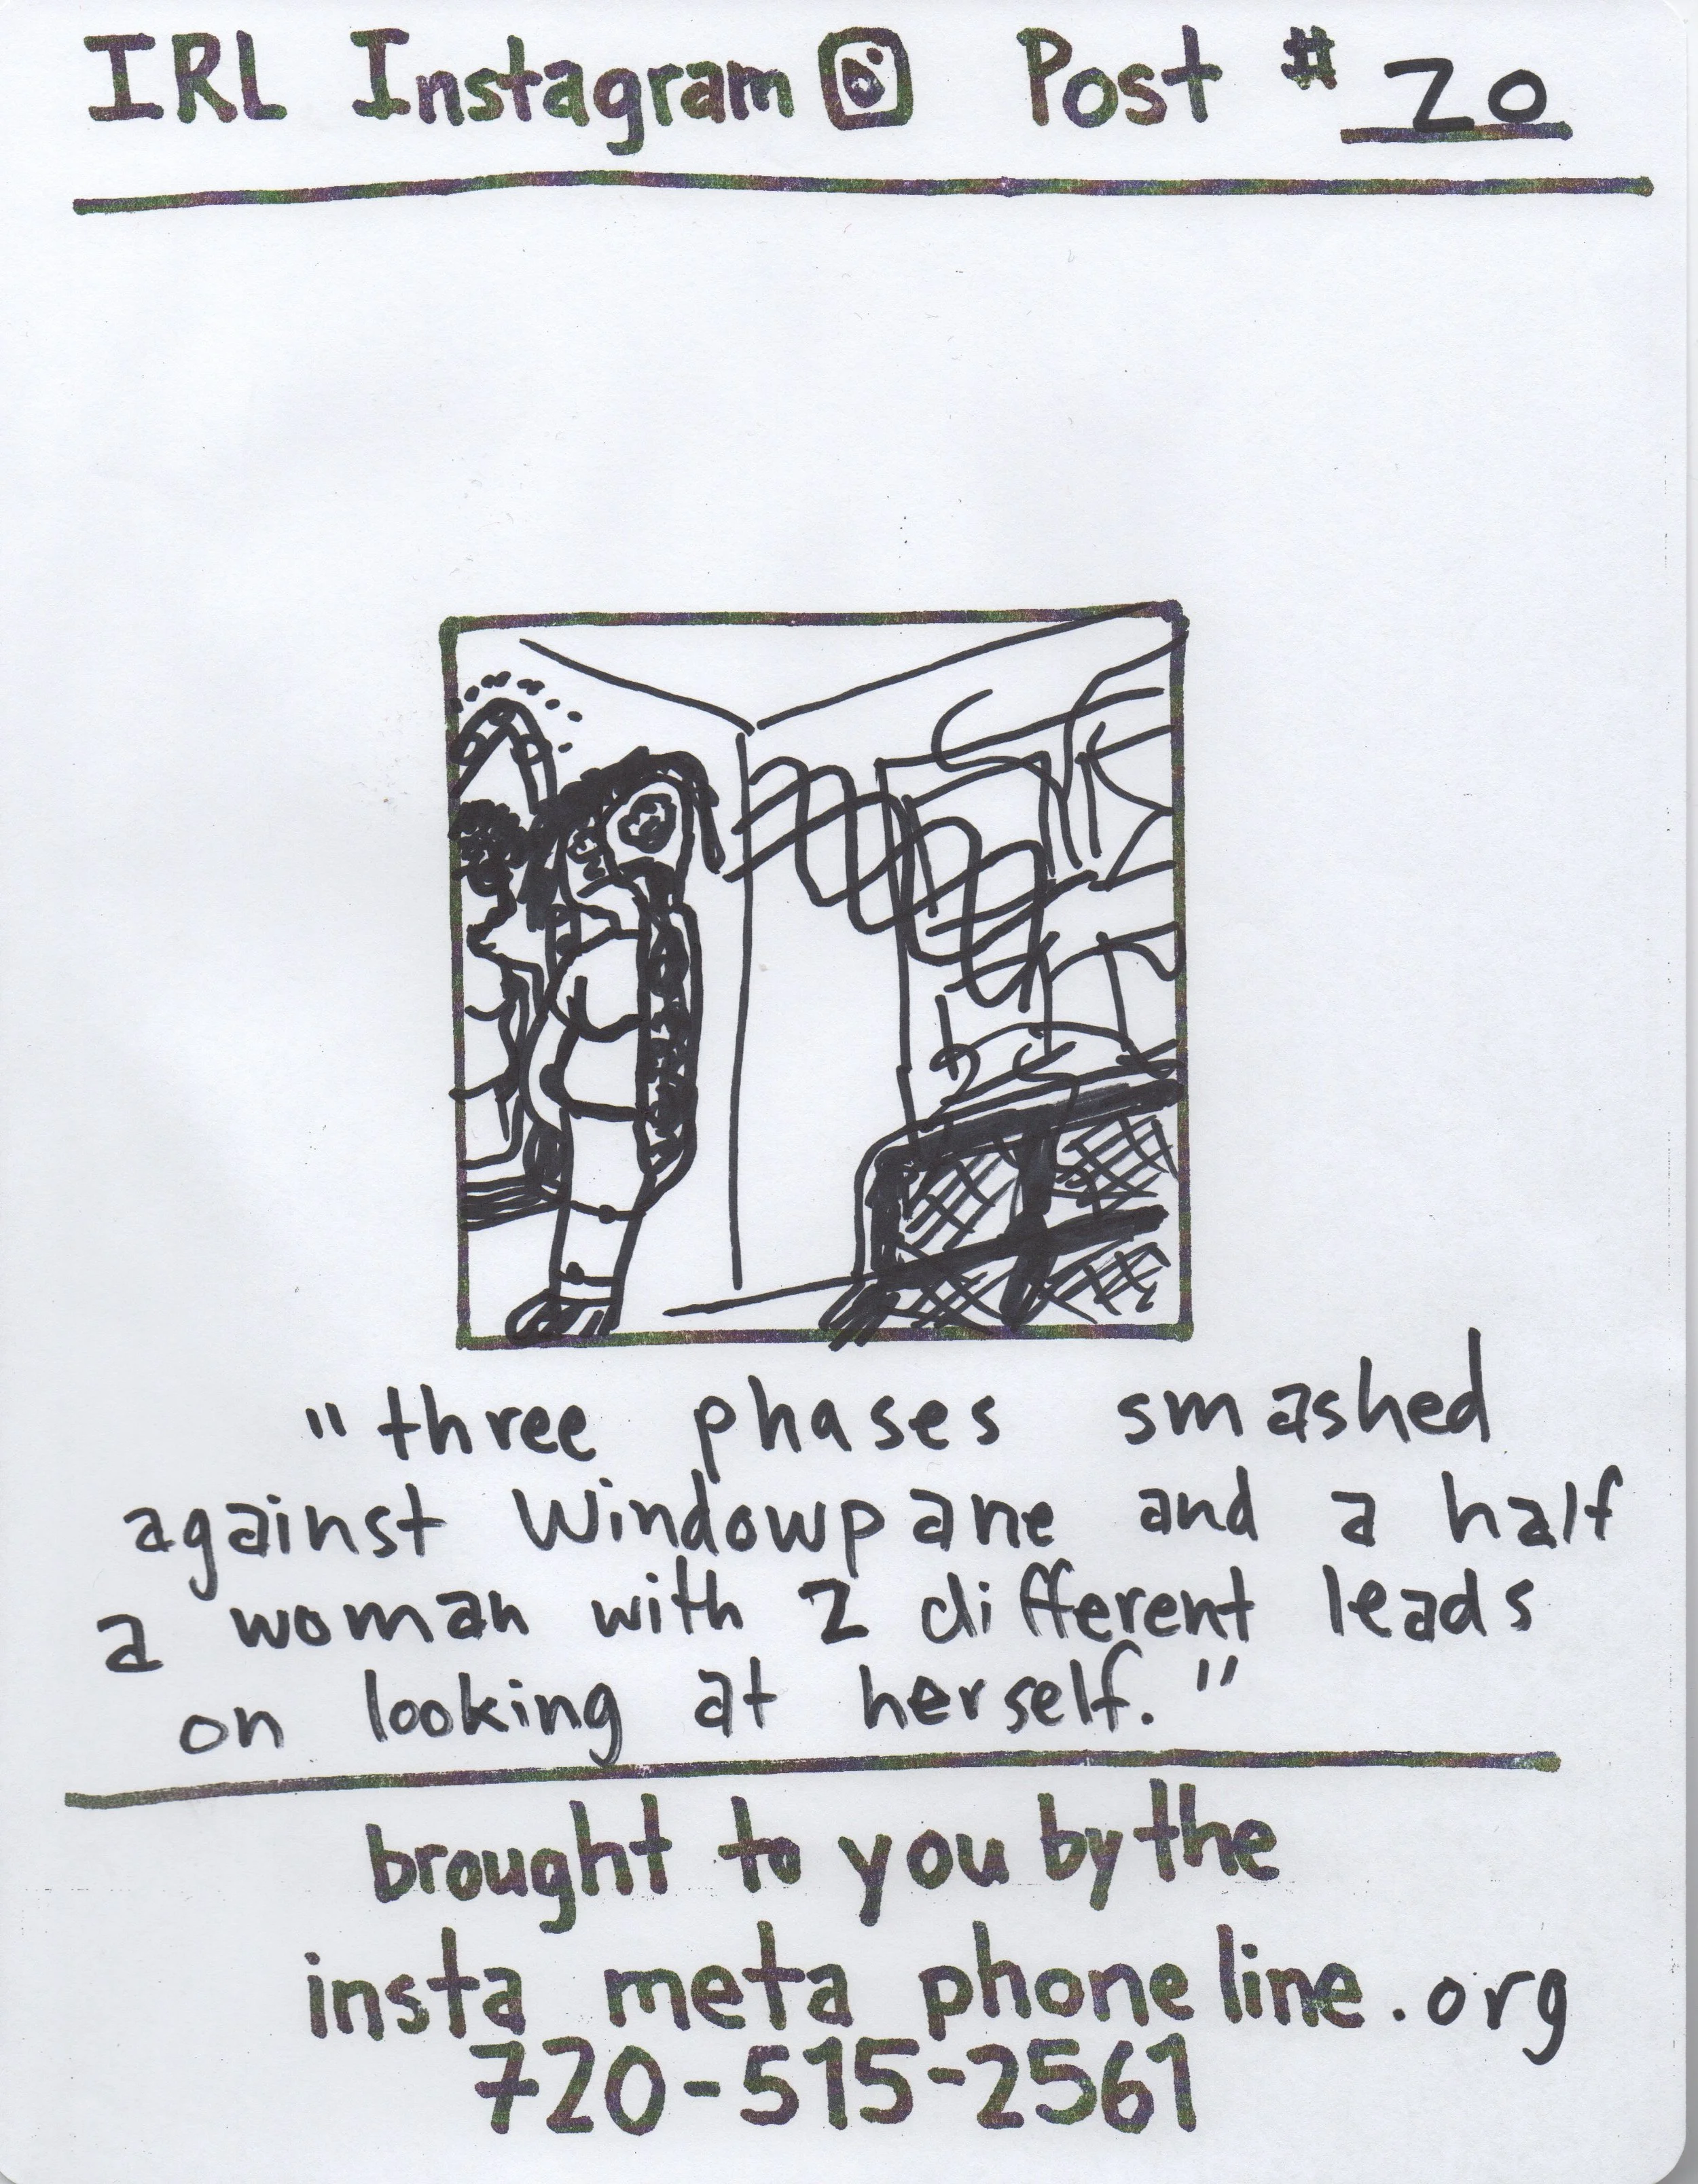 IRL Instagram Post # 20
"three phases smashed
against Windowpane and a half
a woman with 2 different leads
on looking at herself."
brought to you by the
insta meta phone line.org
720-515-2561